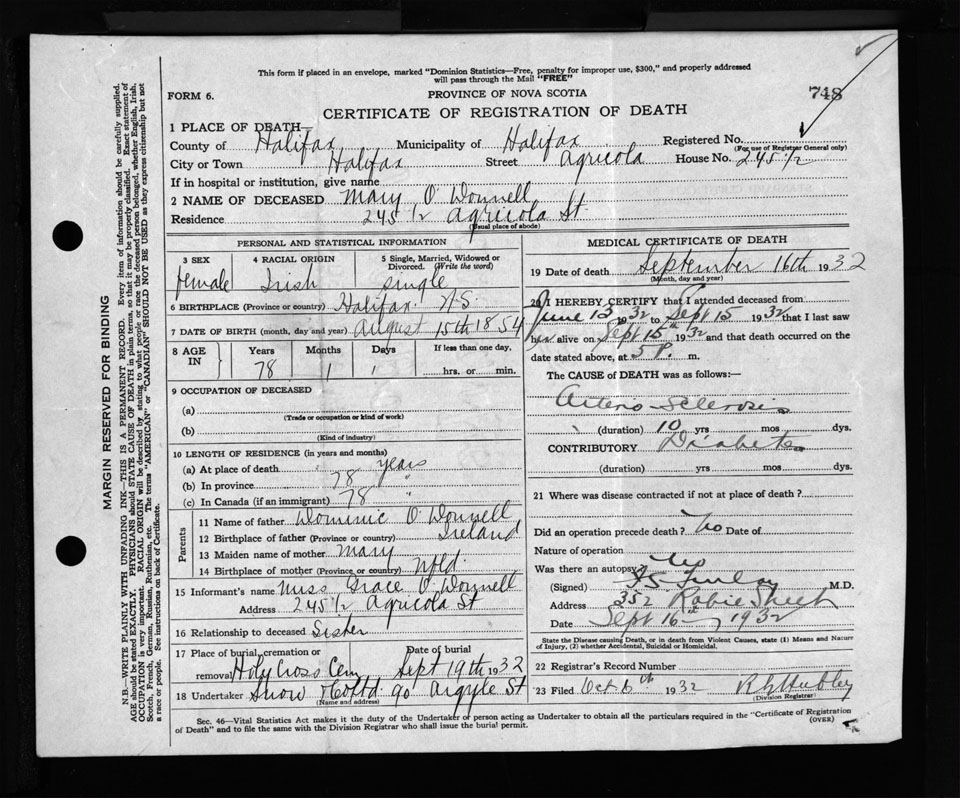 This form if placed in an envelope, marked "Dominion Statistics—Free, penalty for improper use, $300," and properly addressed
will pass through the Mail "FREE"
FORM 6.
PROVINCE OF NOVA SCOTIA
748
CERTIFICATE OF REGISTRATION OF DEATH
1 PLACE OF DEATH—
County of Halifax Municipality of Halifax Registered No.
(For use of Registrar General only)
City or Town Halifax Street Agricola House No. 245 1/2
If in hospital or institution, give name
2 NAME OF DECEASED Mary O'Donnell
Residence 245 1/2 Agricola St.
(Usual place of abode)
PERSONAL AND STATISTICAL INFORMATION
3 SEX 4 RACIAL ORIGIN 5 Single, Married, Widowed or
Divorced. (Write the word)
female Irish single
6 BIRTHPLACE (Province or country) Halifax N.S.
7 DATE OF BIRTH (month, day and year) August 15th 1854
8 AGE IN Years Months Days If less than one day,
78 1 1 hrs. or min.
9 OCCUPATION OF DECEASED
(a)
(Trade or occupation or kind of work)
(b)
(Kind of industry)
10 LENGTH OF RESIDENCE (in years and months)
(a) At place of death years
(b) In province 78 "
(c) In Canada (if an immigrant) 78 "
Parents
11 Name of father Dominic O'Donnell
12 Birthplace of father (Province or country) Ireland
13 Maiden name of mother Mary
14 Birthplace of mother (Province or country) Nfld
15 Informant's name Miss Grace O'Donnell
Address 245 1/2 Agricola St
16 Relationship to deceased Sister
17 Place of burial, cremation or Date of burial
removal Holy Cross Cem Sept 19th 1932
18 Undertaker Snow & Co Ltd 90 Argyle St
(Name and address)
MEDICAL CERTIFICATE OF DEATH
19 Date of death September 16th 1932
(Month, day and year)
20 I HEREBY CERTIFY that I attended deceased from
June 13 1932 to Sept 15 1932 that I last saw
her alive on Sept 15th 1932 and that death occurred on the
date stated above, at 5 P. m.
The CAUSE of DEATH was as follows:—
Arterio-Sclerosis
(duration) 10 yrs mos dys.
CONTRIBUTORY Diabetes
(duration) yrs mos dys.
21 Where was disease contracted if not at place of death?
Did an operation precede death? No Date of
Nature of operation
Was there an autopsy?
(Signed) Finlay M.D.
Address 352 Robie Street
Date Sept 16th 1932
State the Disease causing Death, or in death from Violent Causes, state (1) Means and Nature
of Injury, (2) whether Accidental, Suicidal or Homicidal.
22 Registrar's Record Number
23 Filed Oct. 6th 1932 Hubley
(Division Registrar)
Sec. 46—Vital Statistics Act makes it the duty of the Undertaker or person acting as Undertaker to obtain all the particulars required in the "Certificate of Registration
of Death" and to file the same with the Division Registrar who shall issue the burial permit.
(OVER)
MARGIN RESERVED FOR BINDING
N.B.—WRITE PLAINLY WITH UNFADING INK—THIS IS A PERMANENT RECORD. Every item of information should be carefully supplied.
AGE should be stated EXACTLY. PHYSICIANS should STATE CAUSE OF DEATH in plain terms, so that it may be properly classified. Exact statement of
OCCUPATION is very important. RACIAL ORIGIN will be described by stating to what people or race the deceased person belonged, whether English, Irish,
Scotch, French, German, Russian, Ruthenian, etc. The terms "AMERICAN" or "CANADIAN" SHOULD NOT BE USED as they express citizenship but not
a race or people. See instructions on back of Certificate.